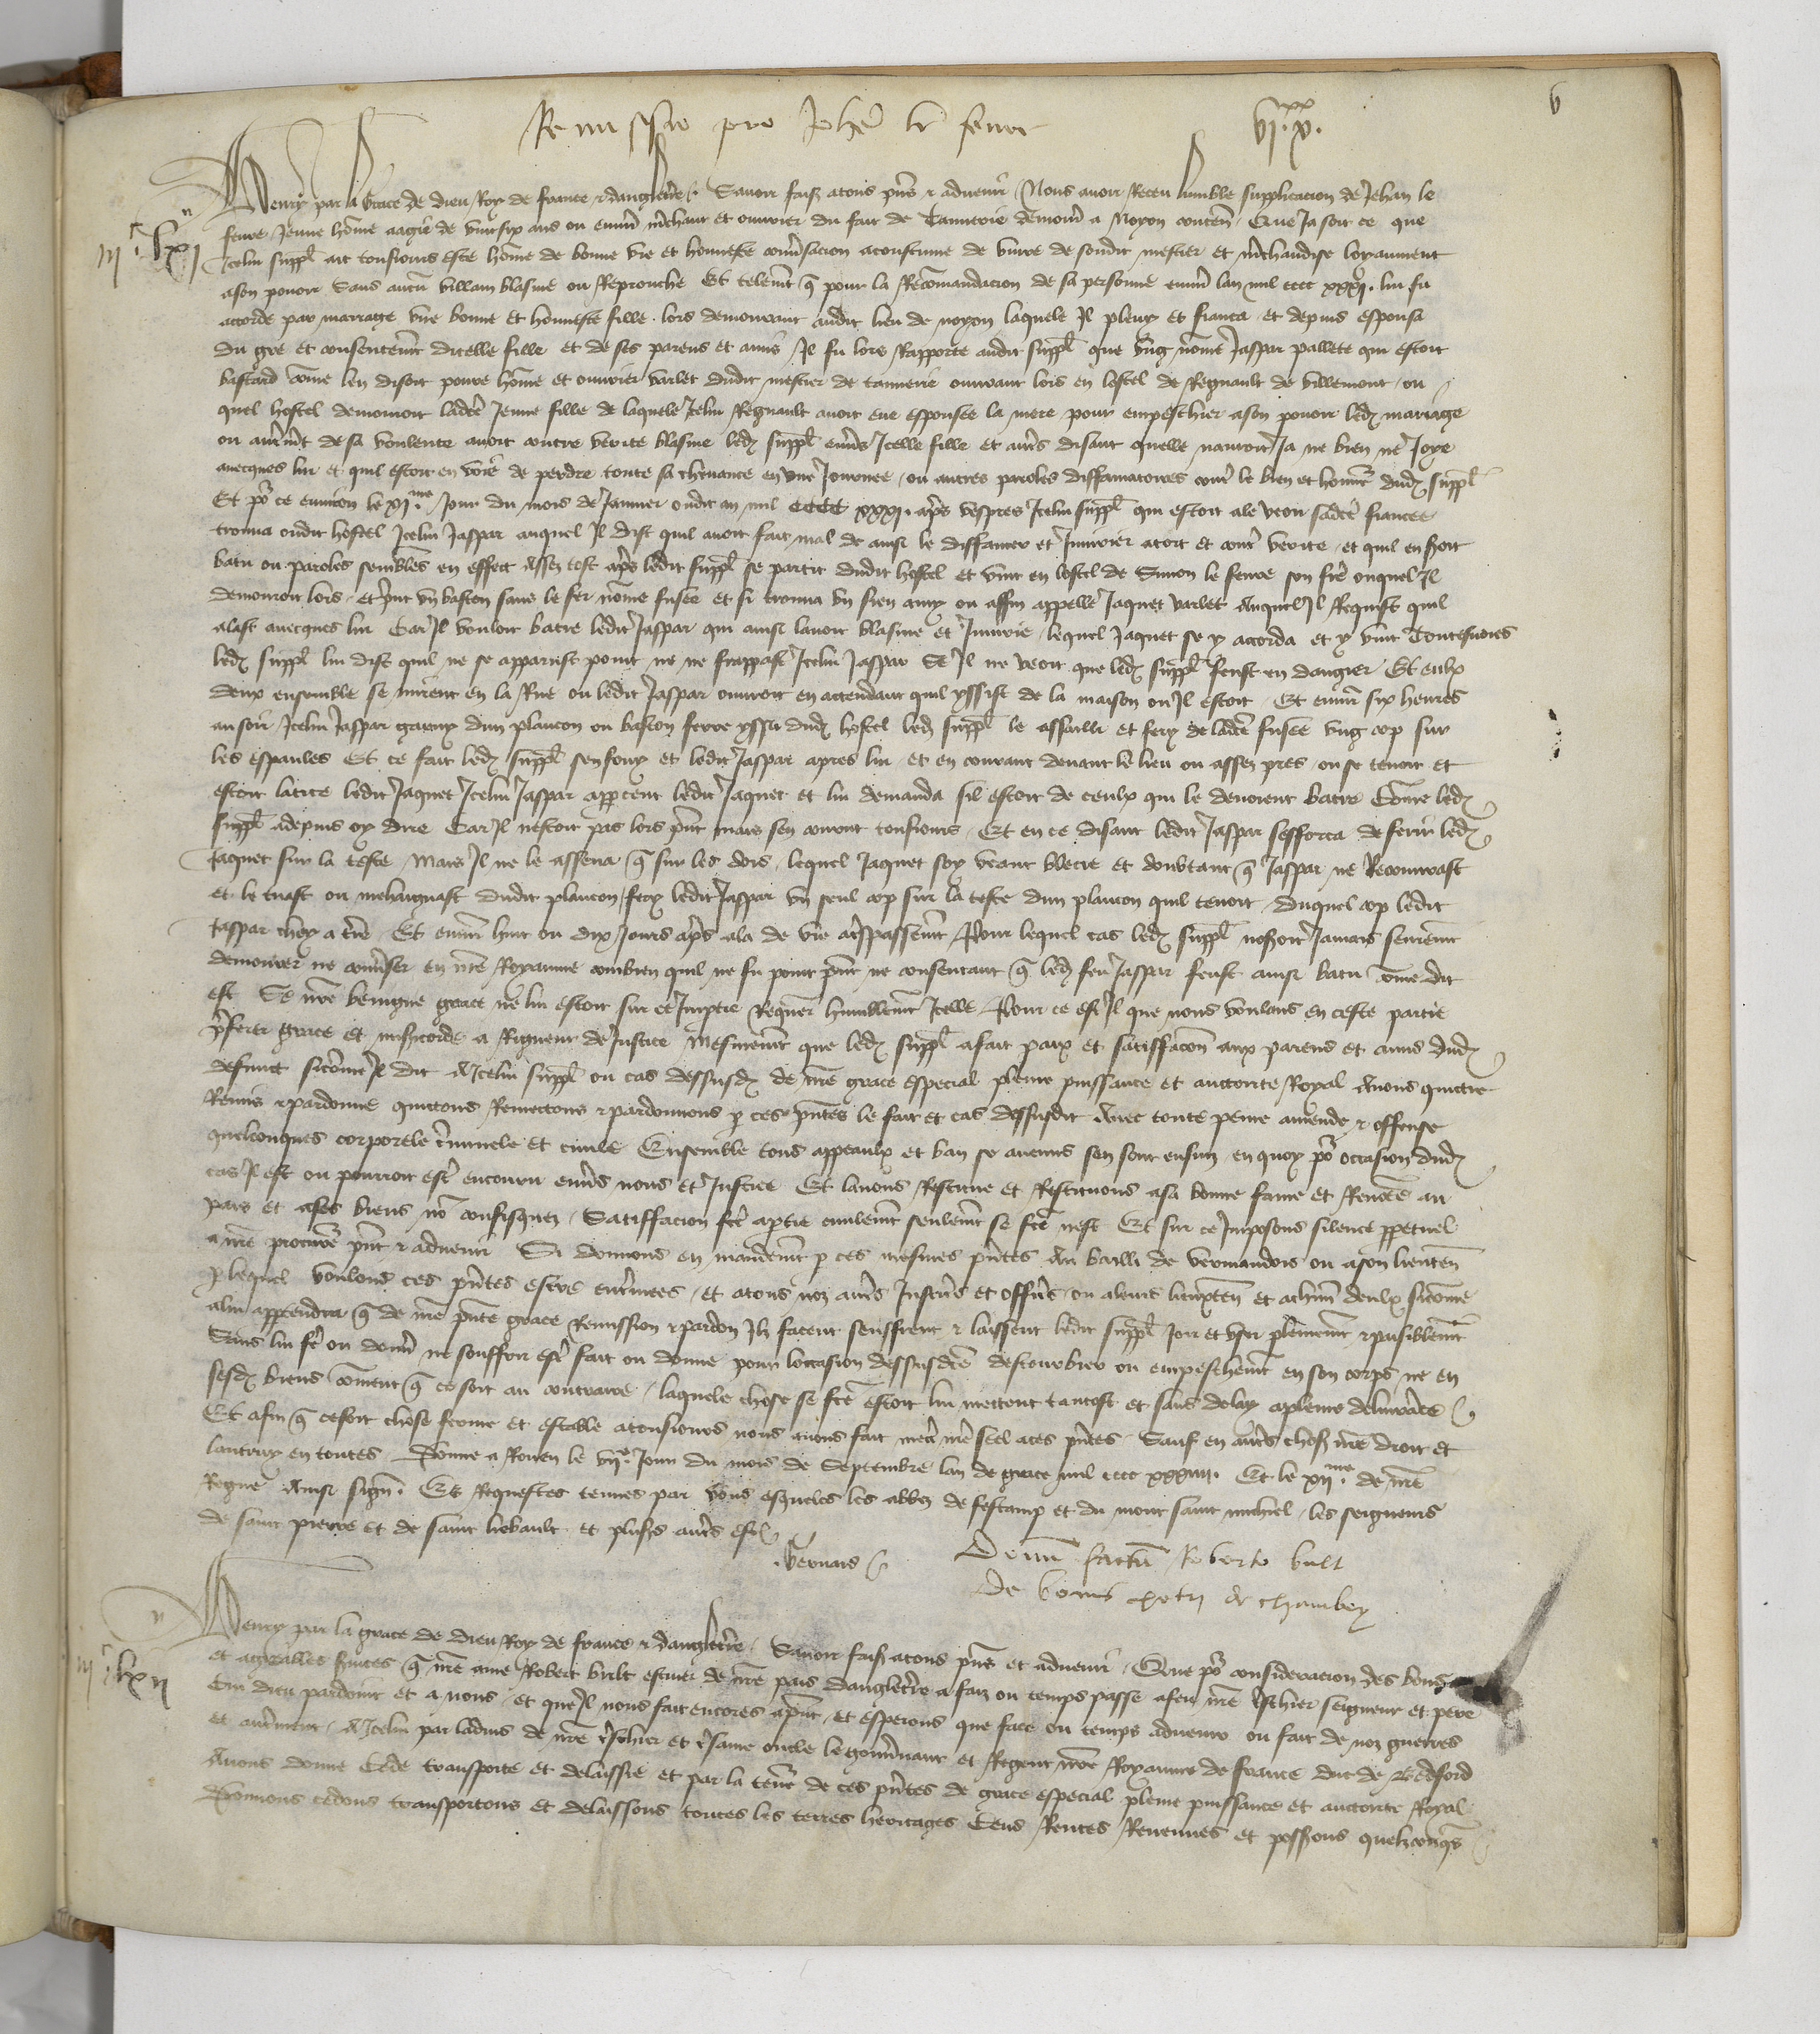 Remissio pro Johe le fevre
vi xx x.
6
Henry par la grace de dieu Roy de france & dangleterre. Savoir fais atous pns & advenir Nous avoir Receu humble supplicacion de Jehan le
iii c lxi
fevre Jeune home aagie de vint six ans ou envir mchant et ouvrier du fait de Tannerie demour a Noyon conten Que Ja soit ce que
Icelui suppl ait tousiours este home de bonne vie et honneste conversacion acoustume de vivre de sondit mestier et mchandise loyaument
ason povoir Sans aucu villain blasme ou Reprouche Et telemt q pour la Recomandacion de sa personne envir lan mil cccc xxxi. lui fu
accorde par mariage une bonne et honneste fille lors demourant audit lieu de noyon laquele Il plevy et fianca et depuis espousa
du gre et consentemt dicelle fille et de ses parens et amis Il fu lors Rapporte audit suppl que ung nome Jaspar pallete qui estoit
bastard come len disoit povre home et ouvrier varlet dudit mestier de tannerie ouvrant lors en lostel de Regnault de villemont ou
quel hostel demouroit ladce Jeune fille de laquele Icelui Regnault avoit eue espousee la mere pour empeschier ason povoir led mariage
ou autremt de sa voulente avoit contre verite blasme led suppl envs Icelle fille et aults disant quelle nauroit Ja ne bien ne Joye
avecques lui et quil estoit en voie de perdre toute sa chevance en une Journee ou autres paroles diffamatoires contre le bien et honneur dud suppl
Et po ce environ le xi me Jour du mois de Janvier oudit an mil cccc xxxi. aps vespres Icelui suppl qui estoit ale veoir sadce fiancee
trouva oudit hostel Icelui Jaspar auquel Il dist quil avoit fait mal de ainsi le diffamer et Iniurier atort et contr verite et quil en seroit
batu ou paroles semblables en effect Assez tost aps ledit suppl se partit dudit hostel et vint en lostel de Simon le fevre son fre ouquel Il
demouroit lors et print un baston sans le fer nome fusee et si trouva un sien amy ou affin appelle Jaquet varlet Auquel Il Requist quil
alast avecques lui Car Il vouloit batre ledit Jaspar qui ainsi lavoit blasme et Iniurie lequel Jaquet se y accorda et y vint Toutesvoies
led suppl lui dist quil ne se apparust point ne ne frappast Icelui Jaspar Se Il ne veoit que led suppl feust en dangier Et eulx
deux ensemble se mirent en la Rue ou ledit Jaspar ouvroit en attendant quil yssist de la maison ou Il estoit Et envir six heures
au soir Icelui Jaspar garny dun plancon ou baston ferre yssit dud hostel led suppl le assailli et fery de ladce fusee ung cop sur
les espaules Et ce fait led suppl senfouy et ledit Jaspar apres lui et en courant devant le lieu ou assez pres ou se tenoit et
estoit latite ledit Jaquet Icelui Jaspar appceut ledit Jaquet et lui demanda sil estoit de ceulx qui le devoient batre Come led
suppl adepuis oy dire Car Il nestoit pas lors pnt mais sen couroit tousiours Et en ce disant ledit Jaspar sefforca de ferir led
Jaquet sur la teste Mais Il ne le assena q sur les dois lequel Jaquet soy veant blecie et doubtant q Jaspar ne Recouvrast
et le tuast ou mehaignast dudit plancon fery ledit Jaspar un seul cop sur la teste dun plancon quil tenoit duquel cop ledit
Jaspar chey a tre Et envir huit ou dix Jours aps ala de vie atrespassemt Pour lequel cas led suppl noseroit Jamais seuremt
demourer ne converser en nre Royaume combien quil ne fu point pnt ne consentant q led feu Jaspar feust ainsi batu come dit
est Se nre benigne grace ne lui estoit sur ce Impartie Requer humblemt Icelle Pour ce est Il que nous voulans en ceste partie
preferer grace et misericorde a Rigueur de Justice Mesmemt que led suppl afait paix et satisfaccon aux parens et amis dud
defunct sicome Il dit A Icelui suppl ou cas dessusd de nre grace especial pleine puissance et auctorite Royal Avons quictie
Remis & pardonne quictons Remectons & pardonnons p ces pntes le fait et cas dessusdit Avec toute peine amende & offense
quelconques corporele criminele et civile Ensemble tous appeaulx et ban se aucuns sen sont ensuiz en quoy po occasion dud
cas Il est ou pourroit estr encouru envs nous et Justice Et lavons Restitue et Restituons asa bonne fame et Renomee au
pais et ases biens no confisquez Satisfacion fce aptie civilemt seulemt se fce nest Et sur ce Imposons silence ppetuel
a nre procureur pnt & advenir Si donnons en mandemt p ces mesmes pntes Au bailli de vermandois ou ason lieuten
p lequel voulons ces pntes estre enterinees et atous noz autrs Justiciers et officiers ou aleurs lieuxten et achun deulx sicome
alui appendra q de nre pnte grace Remission & pardon Ilz facent seuffrent & laissent ledit suppl Joir et user plainemt & paisiblemt
Sans lui fe ou donner ne souffrir estr fait ou donne pour loccasion dessusdce destourbier ou empeschemt en son corps ne en
sesd biens coment q ce soit au contraire laquele chose se fce estoit lui mettent tantost et sans delay apleine delivrance
Et afin q ce soit chose ferme et estable atousiours nous avons fait mectr nre seel aces pntes Sauf en autrs choses nre droit et
lautruy en toutes Donne a Rouen le vii e Jour du mois de Septembre lan de grace mil cccc xxxiiii. Et le xii me de nre
Regne Ainsi sign. Es Requestes tenues par vous esqueles les abbez de fescamp et du mont saint michiel les seigneurs
de saint pierre et de saint liebault et plusrs autrs estoient
Gervais
Donu factu Roberto bult
de bonis
Henry par la grace de dieu Roy de france & dangleterre Savoir fais atous pns et advenir Que po consideracion des bons
iii c lxii
et agreables services q nre ame Robert bult escuier de nre pais dangleterre a faiz ou temps passe afeu nre treschier seigneur et pere
Cui dieu pardoint et a nous et que Il nous fait encores apnt et esperons que face ou temps advenir ou fait de noz guerres
et autrement A Icelui par ladvis de nre treschier et tresame oncle le gouvernant et Regent nre Royaume de france duc de Bedford
Avons donne Cede transporte et delaissie et par la teneur de ces pntes de grace especial pleine puissance et auctorite Royal
Donnons cedons transportons et delaissons toutes les terres heritages Cens Rentes Revenues et possessions quelzconqs